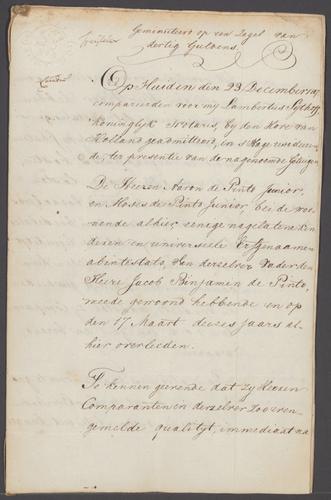 Geminuteert op een Zegel van
dertig Guldens.
Op Huiden den 23 December
compareerden voor my Lambertus
Koninglijk Notaris, by den Hove van
Holland geadmitteerd, in s'Hage
de, ter presentie van de nagenoemde Getuigen
De Heeren Aaron de Pinto Junior,
en Moses de Pinto Junior beide wo-
nende alhier, eenige nagelatene Kin-
deren en universeele Erfgenaamen
ab intestato, van derzelver Vader den
Heere Jacob Binjamen de Pinto,
meede gewoond hebbende en op
den 17 Maart deezes Jaars al-
hier overleeden.
Te kennen geevende dat zy Heeren
Comparanten in derzelver voveren-
gemelde qualityt, immediaat na